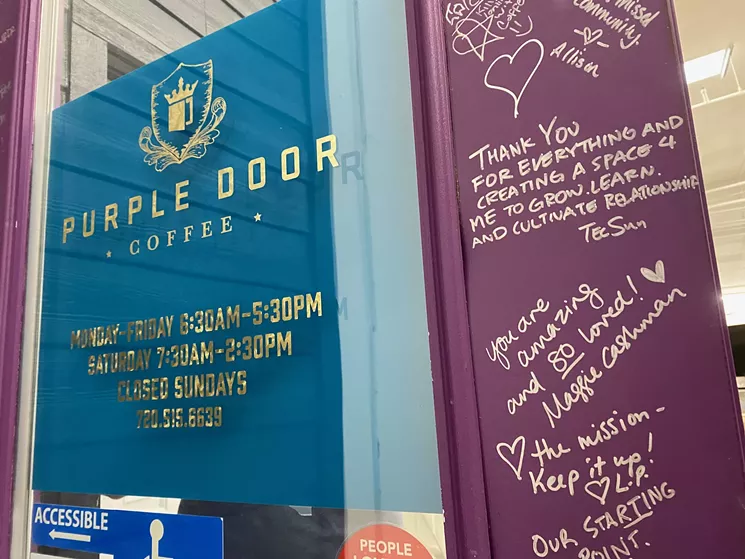 PURPLE DOOR
COFFEE
MONDAY-FRIDAY 6:30AM-5:30PM
SATURDAY 7:30AM-2:30PM
CLOSED SUNDAYS
720.515.6639
ACCESSIBLE
PEOPLE
missed
community.
Allison
THANK YOU
FOR EVERYTHING AND
CREATING A SPACE 4
ME TO GROW. LEARN.
AND CULTIVATE RELATIONSHIP
you are
amazing
and so loved!
Maggie Cashman
the mission-
Keep it up!
L.P.
OUR STARTING
POINT.